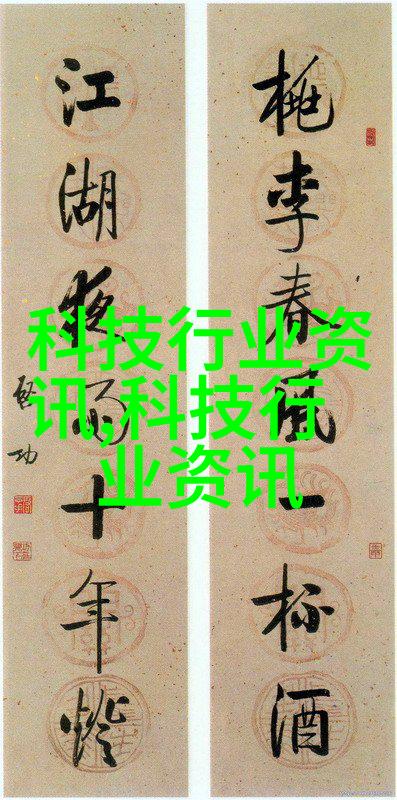 桃李春風一杯酒
江湖夜雨十年燈
啓功
科技行业资
讯,科技行
业资讯